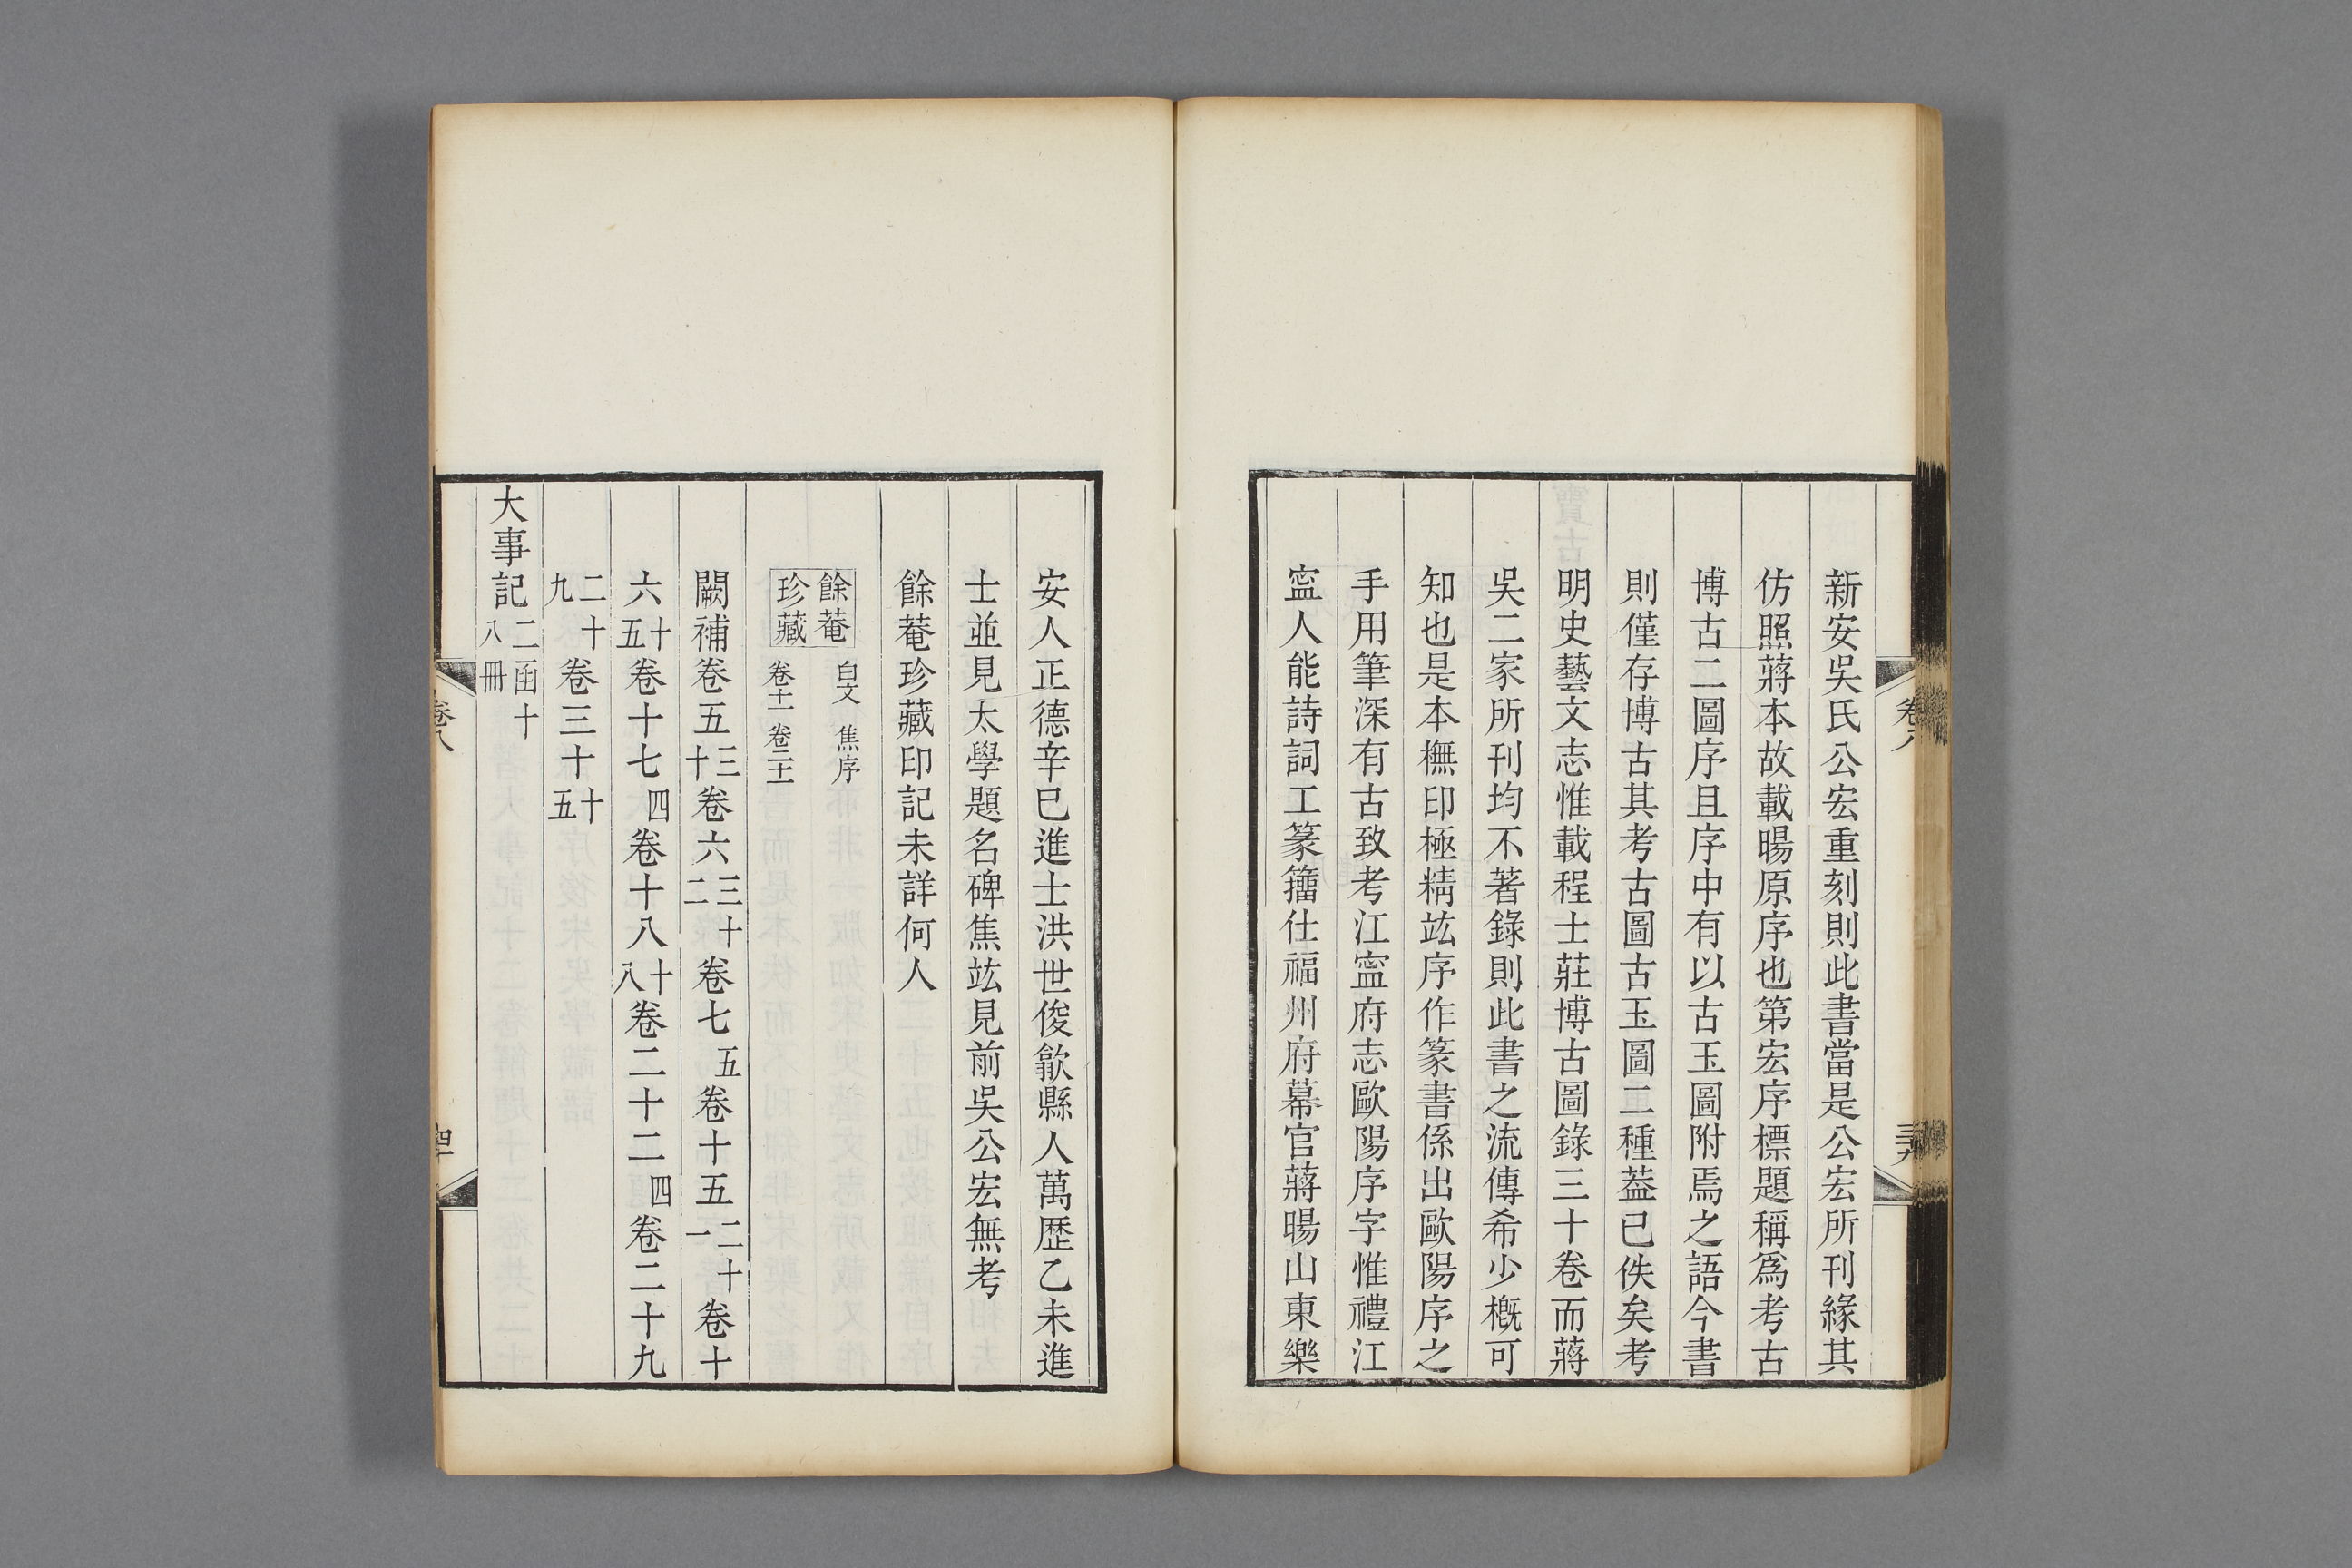 新安吳氏公宏重刻則此書當是公宏所刊緣其
仿照蔣本故載暘原序也第宏序標題稱爲考古
博古二圖序且序中有以古玉圖附焉之語今書
則僅存博古其考古圖古玉圖二種葢已佚矣考
明史藝文志惟載程士莊博古圖錄三十卷而蔣
吳二家所刊均不著錄則此書之流傳希少概可
知也是本橅印極精竑序作篆書係出歐陽序之
手用筆深有古致考江寍府志歐陽序字惟禮江
寍人能詩詞工篆籒仕福州府幕官蔣暘山東樂
安人正德辛巳進士洪世俊歙縣人萬歴乙未進
士並見太學題名碑焦竑見前吳公宏無考
餘菴珍藏印記未詳何人
餘菴珍藏 白文 焦序 卷十一 卷二十一
闕補卷五三十三卷六三十二卷七五卷十五二十一卷十
六十五卷十七四卷十八十八卷二十二四卷二十九
二十九卷三十十五
大事記二函十八冊
卷八